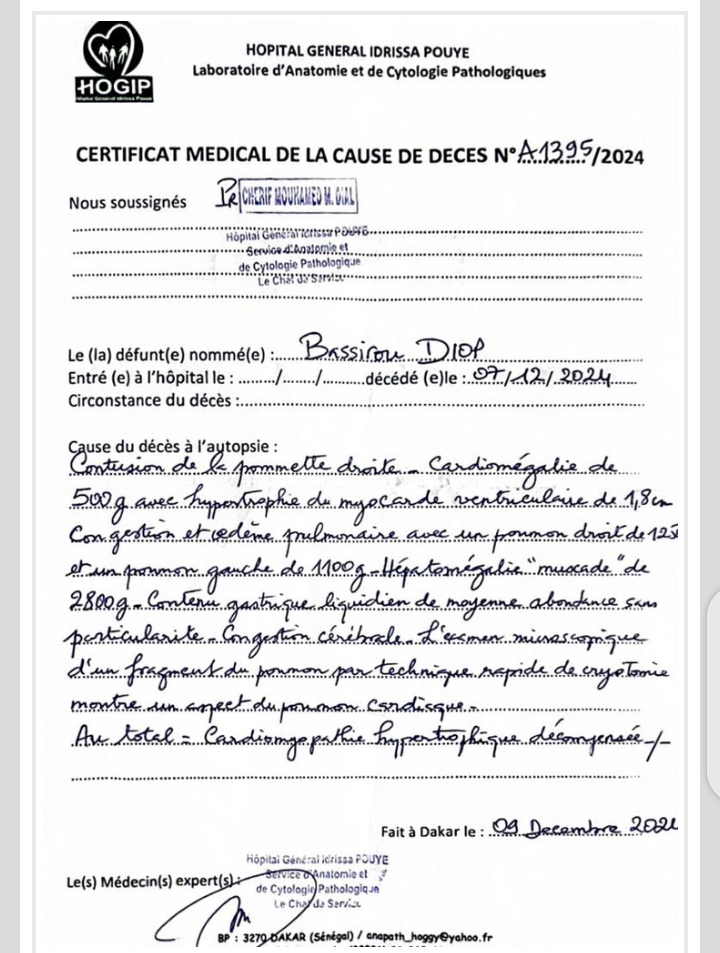 HOGIP
Hôpital Général Idrissa Pouye
HOPITAL GENERAL IDRISSA POUYE
Laboratoire d'Anatomie et de Cytologie Pathologiques
CERTIFICAT MEDICAL DE LA CAUSE DE DECES N° A1395/2024
Nous soussignés Pr CHERIF MOUHAMED M. DIAL
Hôpital Général Idrissa POUYE
Service d'Anatomie et
de Cytologie Pathologique
Le Chef de Service
Le (la) défunt(e) nommé(e) : Bassirou DIOP
Entré (e) à l'hôpital le : ......../......./......... décédé (e)le : 07/12/2024
Circonstance du décès :
Cause du décès à l'autopsie :
Contusion de la pommette droite - Cardiomégalie de
500g avec hypertrophie du myocarde ventriculaire de 1,8cm
Congestion et œdème pulmonaire avec un poumon droit de 125
et un poumon gauche de 1100g - Hépatomégalie "muscade" de
2800g - Contenu gastrique liquidien de moyenne abondance sans
particularité - Congestion cérébrale - L'examen microscopique
d'un fragment du poumon par technique rapide de cryotomie
montre un aspect du poumon cardiaque -
Au total = Cardiomyopathie hypertrophique décompensée -/-
Fait à Dakar le : 09 Decembre 202
Hôpital Général Idrissa POUYE
Le(s) Médecin(s) expert(s) : Service d'Anatomie et
de Cytologie Pathologique
Le Chef de Service
BP : 3270 DAKAR (Sénégal) / anapath_hoggy@yahoo.fr